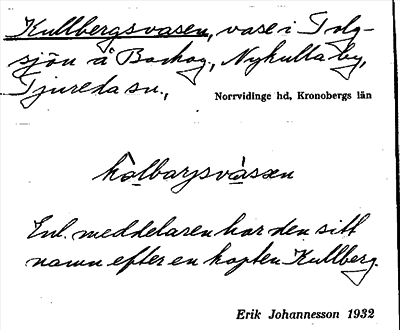 Kullbergsvasen, vase i Tolg-
sjön å Boskog, Nykulla by,
Tjureda sn.,
Norrvidinge hd, Kronobergs län
kålbarjsvàsan
Enl. meddelaren har den sitt
namn efter en kapten Kullberg.
Erik Johannesson 1932